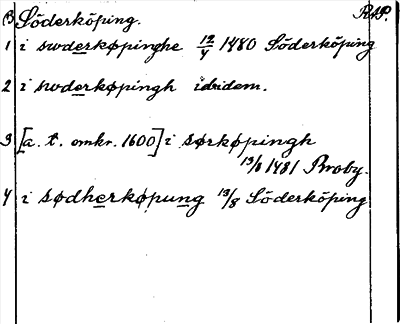 (B) Söderköping. RAP.
1 i swderkøpinghe 12/4 1480 Söderköping
2 i swderkøpingh ibidem.
3 [a. t. omkr. 1600] i sørkøpingh
13/8 1481 Broby.
4 i sødherkøpung 13/8 Söderköping